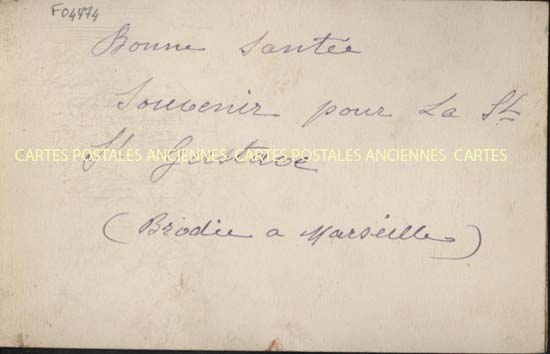 F04474
Bonne Santée
Souvenir pour La St
CARTES POSTALES ANCIENNES CARTES POSTALES ANCIENNES CARTES
St Gustave
(Brodée a Marseille)